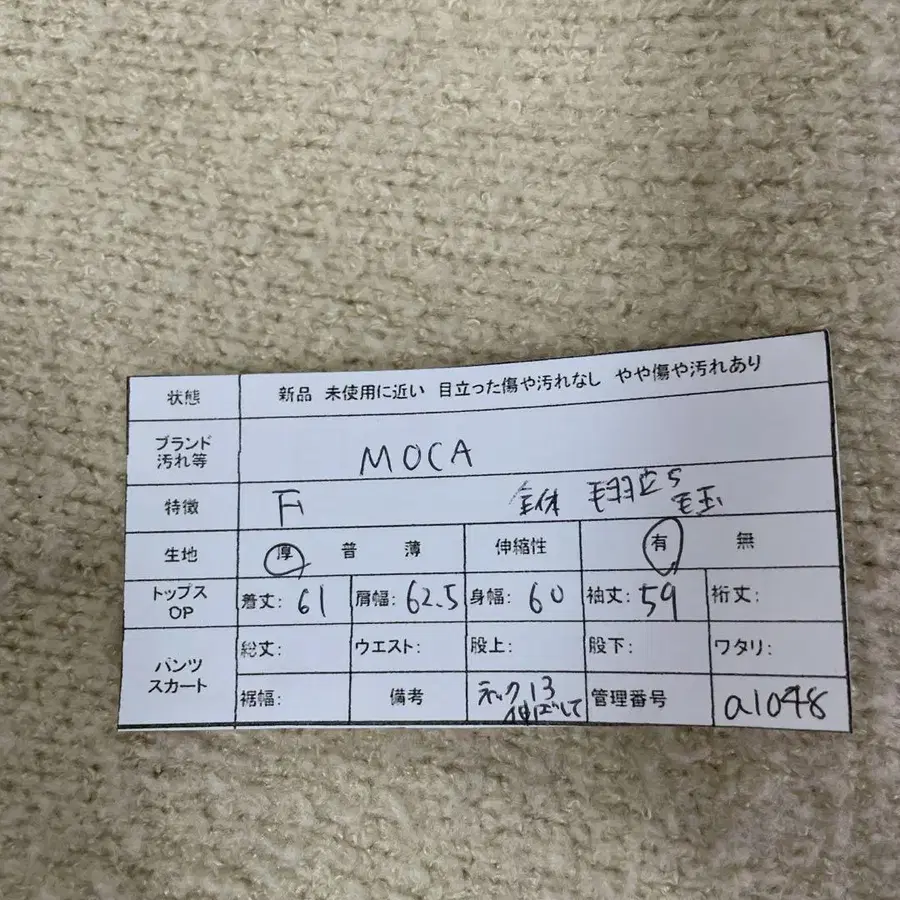 状態 新品 未使用に近い 目立った傷や汚れなし やや傷や汚れあり
ブランド
汚れ等 MOCA
特徴 F 全体 毛羽立ち
毛玉
生地 厚 普 薄 伸縮性 有 無
トップス
OP 着丈: 61 肩幅: 62.5 身幅: 60 袖丈: 59 裄丈:
パンツ
スカート 総丈: ウエスト: 股上: 股下: ワタリ:
裾幅: 備考 ネック13
伸ばして 管理番号 a1048